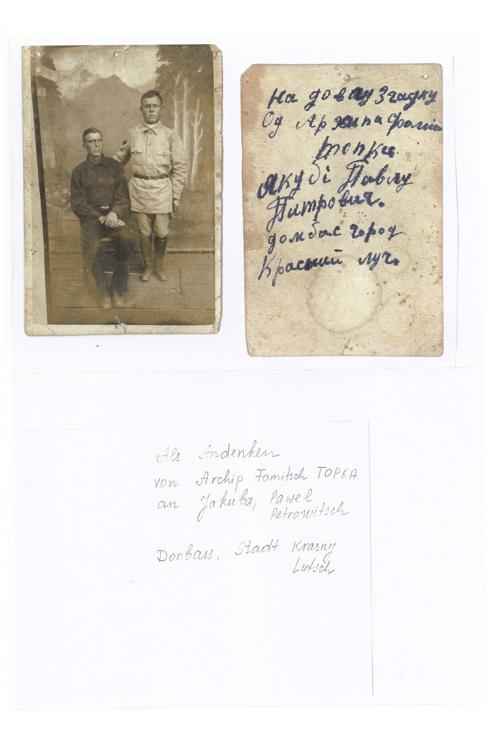 На довгу згадку
Од Архипа Фомич
топки
Якубі Павлу
Питрович.
домбас город
Красний луч.
Als Andenken
von Archip Fomitsch TOPKA
an Jakuba, Pawel
Petrowitsch
Donbass, Stadt Krasny
Lutsch